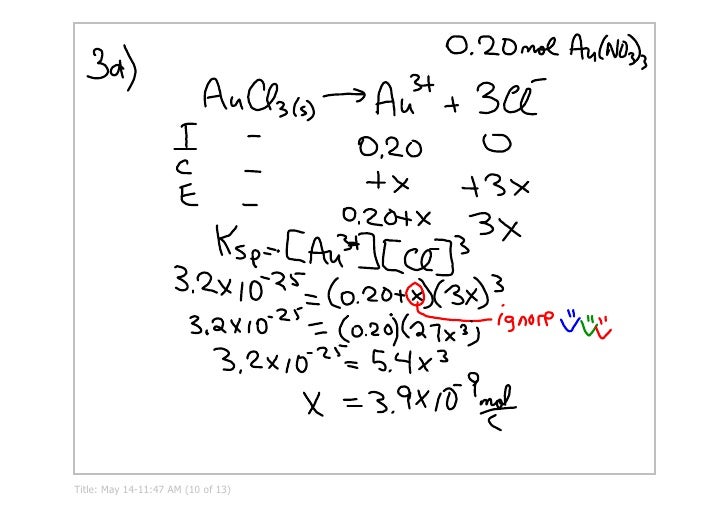 0.20mol Au(NO3)3
3a)
AuCl3(s) → Au3+ + 3Cl-
I - 0.20 0
C - +x +3x
E - 0.20+x 3x
Ksp = [Au3+][Cl-]3
3.2x10-25 = (0.20+x)(3x)3
ignore
3.2x10-25 = (0.20)(27x3)
3.2x10-25 = 5.4x3
x = 3.9x10-9 mol/L
Title: May 14-11:47 AM (10 of 13)